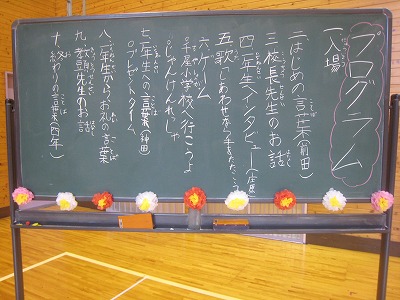 プログラム
一入場
二はじめの言葉(前田)
三校長先生のお話
四一年生へインタビュー
五歌「しあわせなら手をたたこう」
六ゲーム
「千屋小学校へ行こうよ
じゃんけんれっしゃ
七一年生への言葉(神田)
プレゼントタイム
八一年生からお礼の言葉
九教頭先生のお話
十終わりの言葉(四年)